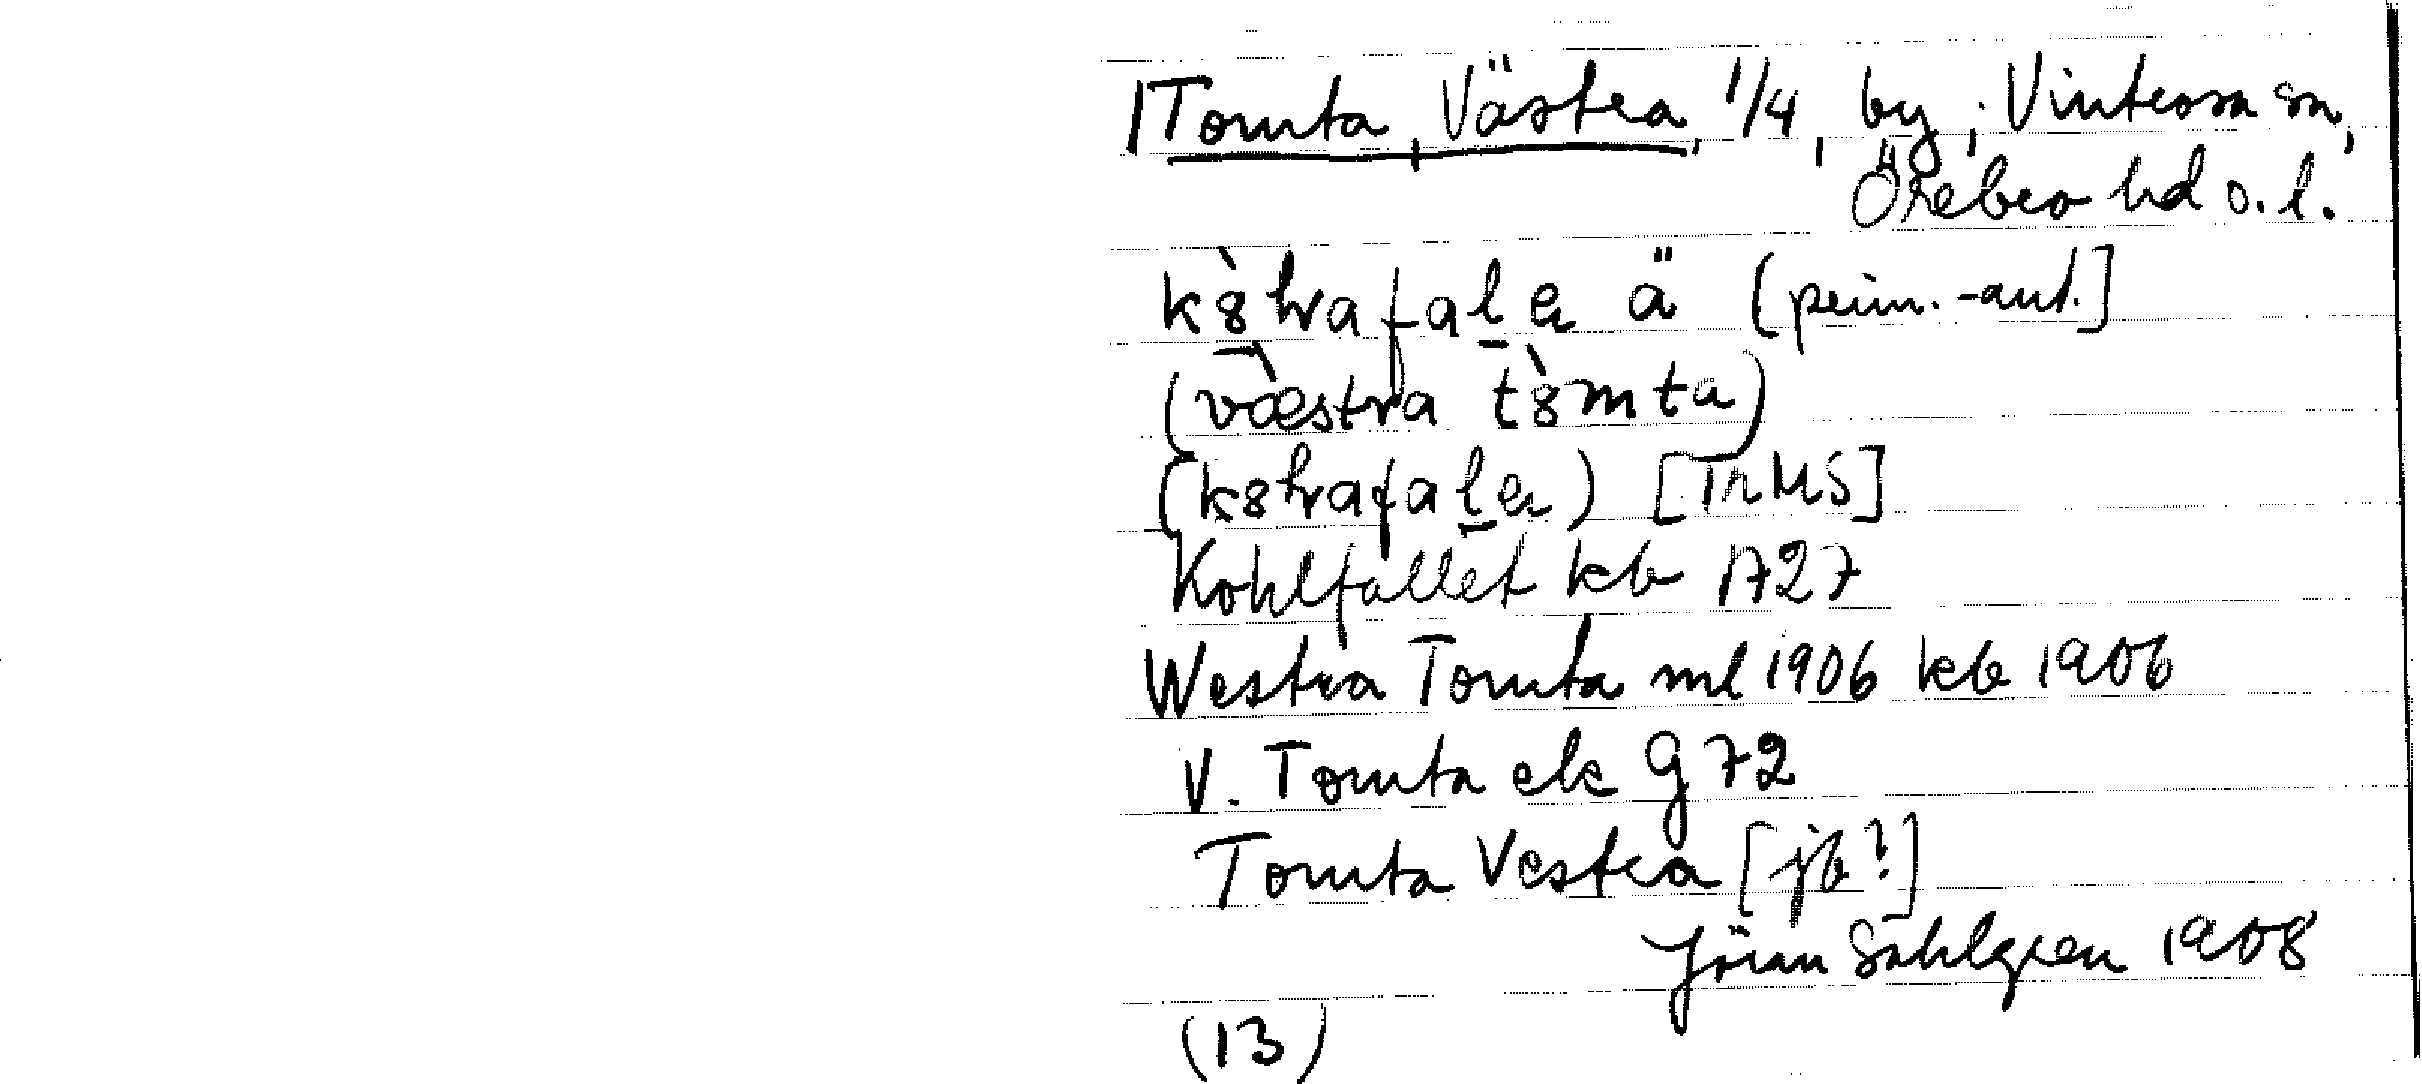 Tomta, Västra, 1/4, by; Vintrosa sn,
Örebro hd ö. l.
kȣ̀hvafalen ä [prim.-ant.]
(væ̀stra tȣ̀mta)
(kȣhvafalen) [ThMS]
Kohlfallet kb 1727
Westra Tomta ml 1906 kb 1906
V. Tomta ek G 72
Tomta Vestra [jb?]
Jöran Sahlgren 1908
(13)